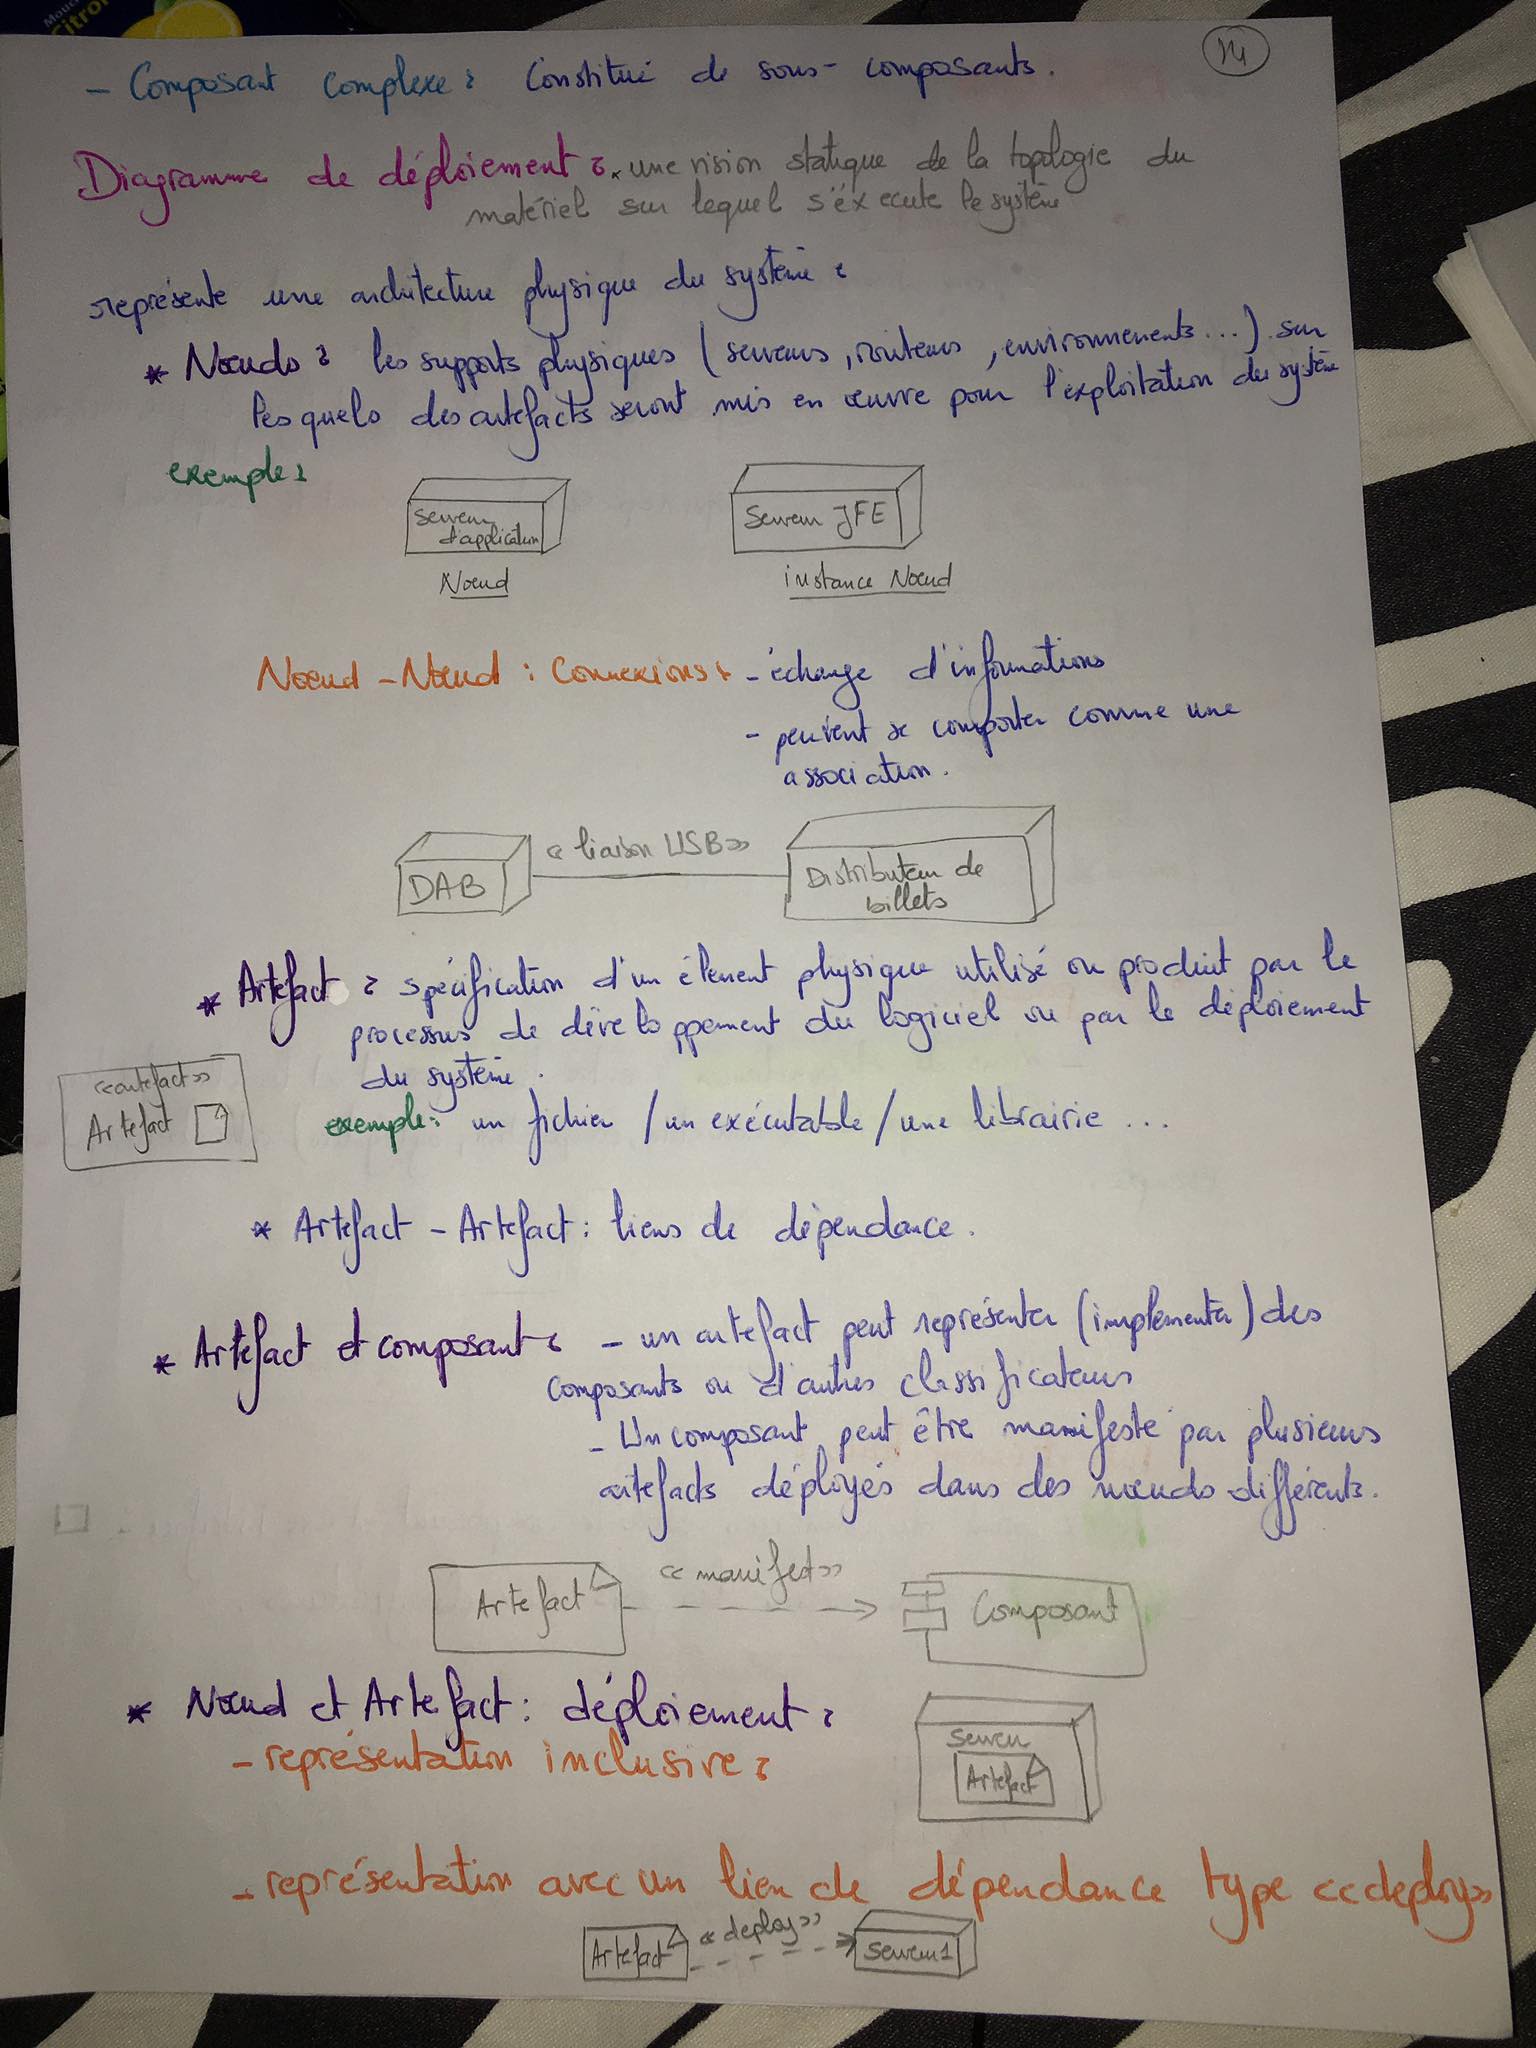 Citron
14
- Composant complexe : Constitué de sous-composants.
Diagramme de déploiement : * une vision statique de la topologie du
matériel sur lequel s'éxecute le système
représente une architecture physique du système :
* Nœuds : les supports physiques (serveurs, routeurs, environnements...) sur
lesquels des artefacts seront mis en œuvre pour l'exploitation du système
exemple :
Serveur
d'application
Serveur JFE
Nœud
instance Nœud
Nœud - Nœud : Connexions : - échange d'informations
- peuvent se comporter comme une
association.
DAB
« liaison USB »
Distributeur de
billets
* Artefact : spécification d'un élement physique utilisé ou produit par le
processus de développement du logiciel ou par le déploiement
du système.
«artefact»
Artefact
exemple : un fichier / un exécutable / une librairie ...
* Artefact - Artefact : liens de dépendance.
* Artefact et composant : - un artefact peut représenter (implémenter) des
composants ou d'autres classificateurs
- Un composant peut être manifeste par plusieurs
artefacts déployés dans des nœuds différents.
Artefact
« manifest »
Composant
* Nœud et Artefact : déploiement :
- représentation inclusive :
Serveur
Artefact
- représentation avec un lien de dépendance type «deploy»
Artefact
« deploy »
Serveur1